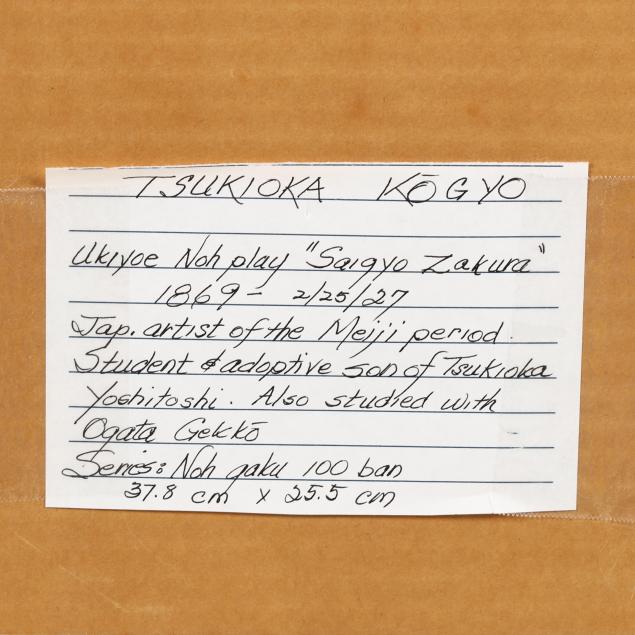 TSUKIOKA KŌGYO
Ukiyoe Noh play "Saigyo Zakura"
1869 - 2/25/27
Jap. artist of the Meiji period.
Student & adoptive son of Tsukioka
Yoshitoshi. Also studied with
Ogata Gekkō
Series: Noh gaku 100 ban
37.8 cm x 25.5 cm